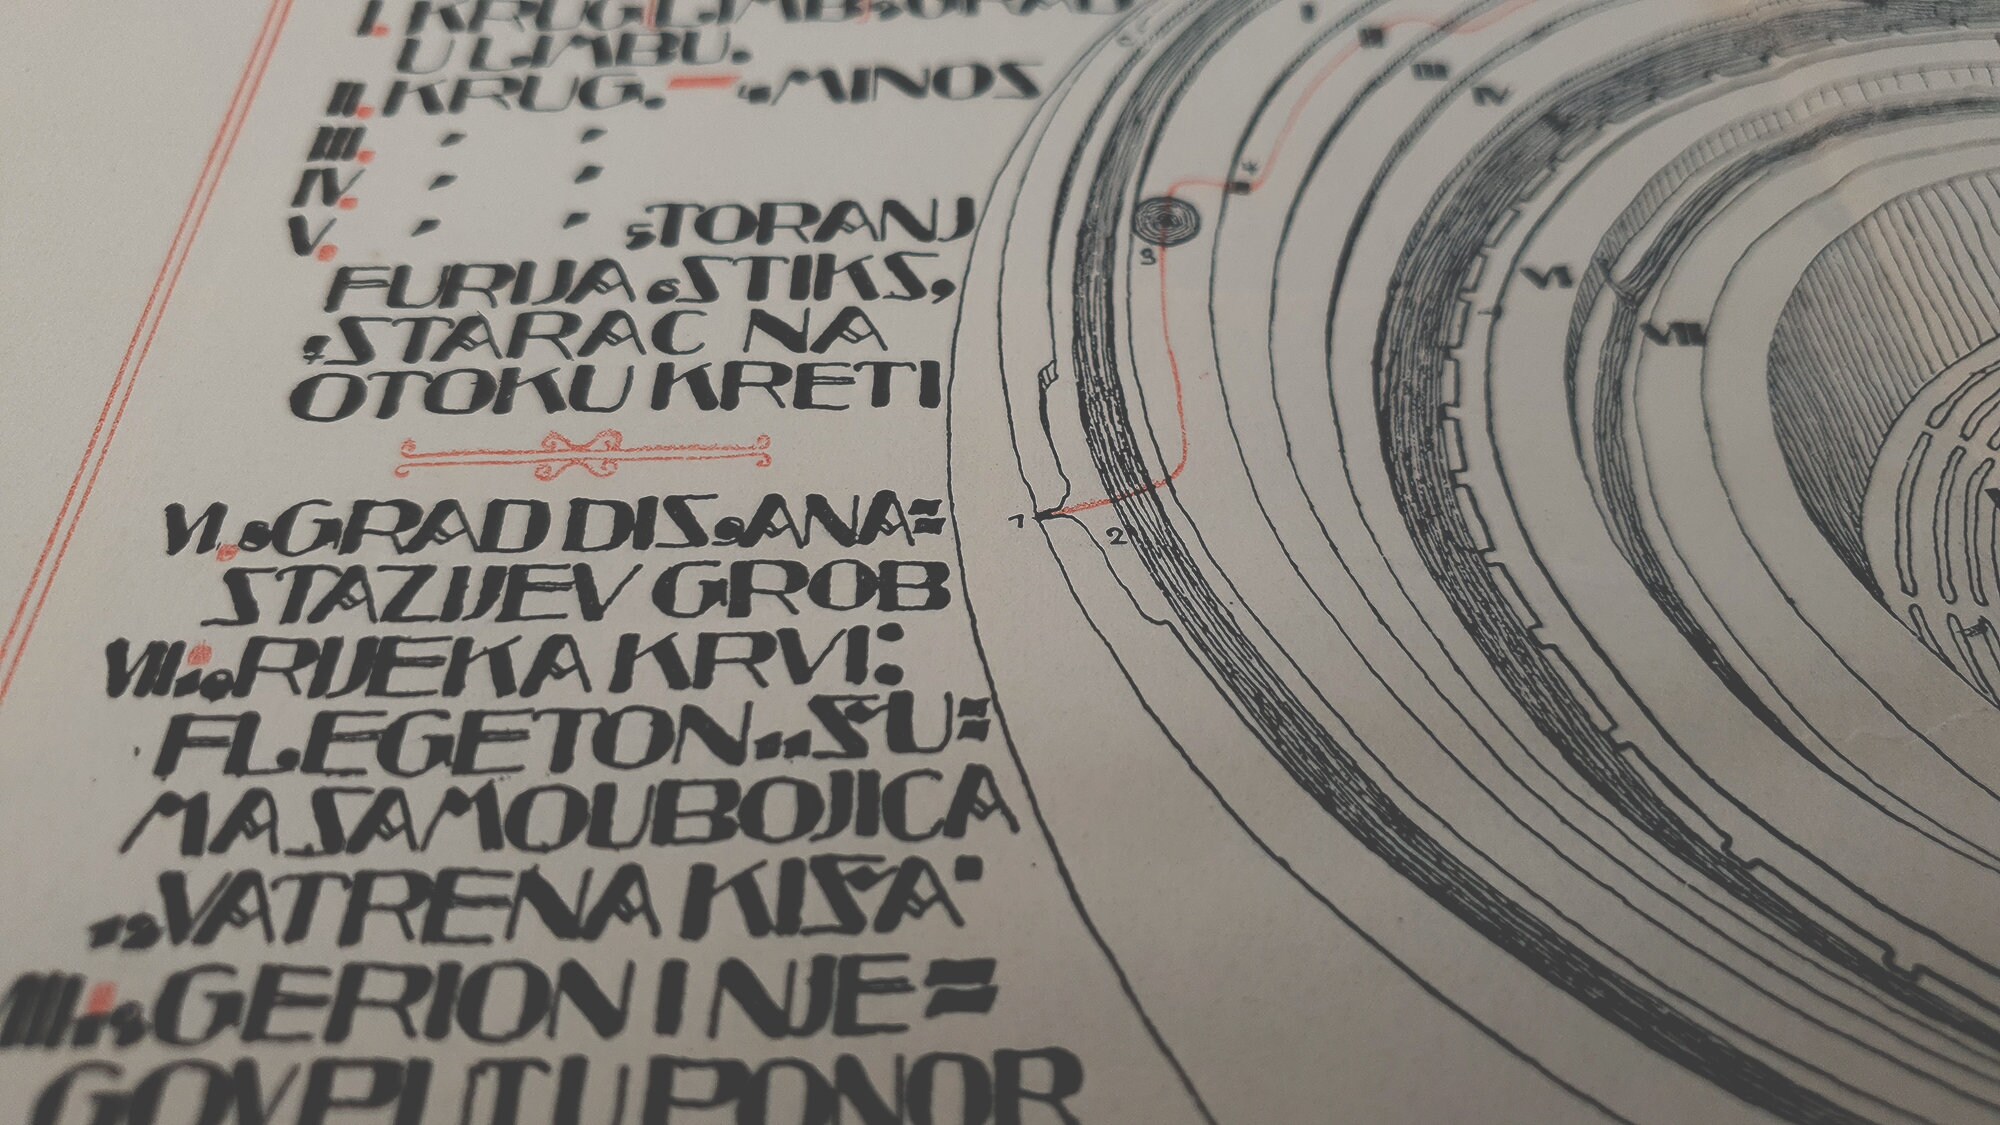 I. KRUG LIMB, 3GRAD
U LIMBU.
II. KRUG. — 4MINOS
III. " "
IV. " "
V. " " 5TORANJ
FURIJA 6STIKS,
7STARAC NA
OTOKU KRETI
VI. 8GRAD DIS. 9ANA=
STAZIJEV GROB
VII. 10RIJEKA KRVI:
FLEGETON. 11ŠU=
MA SAMOUBOJICA
12VATRENA KIŠA.
VIII. 13GERION I NJE=
GOV PUT U PONOR
I
II
III
IV
4
3
VI
VII
1
2